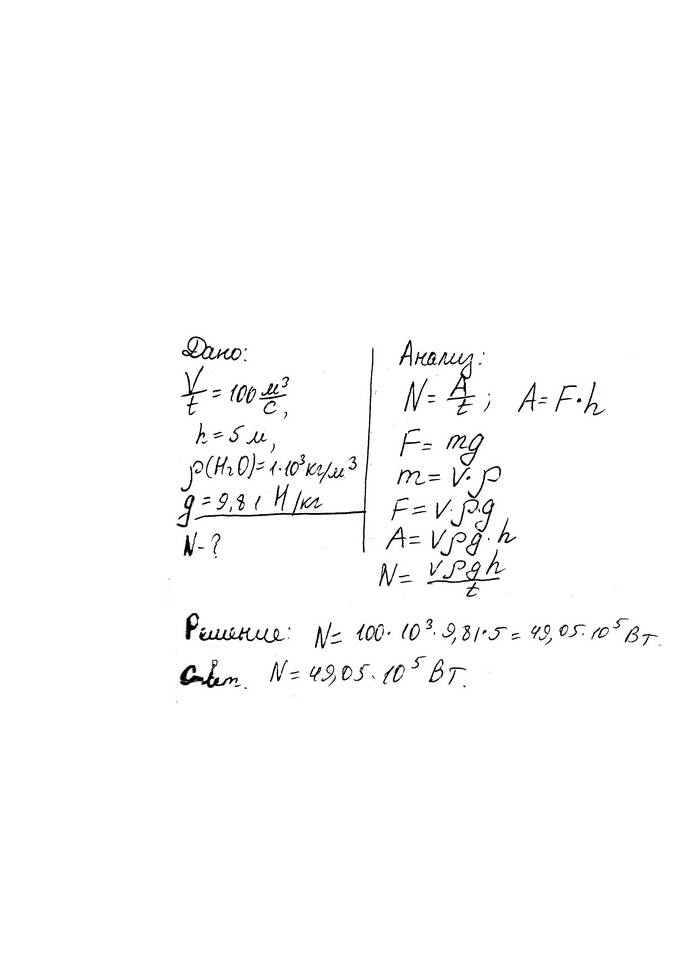 Дано:
V/t = 100 м³/с,
h = 5 м,
ρ(H₂O) = 1·10³ кг/м³
g = 9,81 Н/кг
N - ?
Анализ:
N = A/t ; A = F·h
F = mg
m = V·ρ
F = V·ρ·g
A = Vρg·h
N = Vρgh/t
Решение: N = 100·10³·9,81·5 = 49,05·10⁵ Вт.
Ответ. N = 49,05·10⁵ Вт.